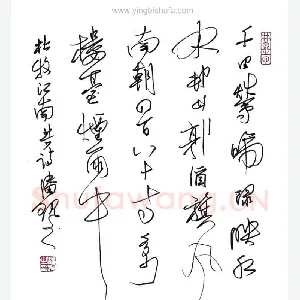 www.yingbishufa.com
千里鶯啼綠映紅
水村山郭酒旗風
南朝四百八十寺多少
樓臺煙雨中
杜牧江南春詩
Shufawang.cn